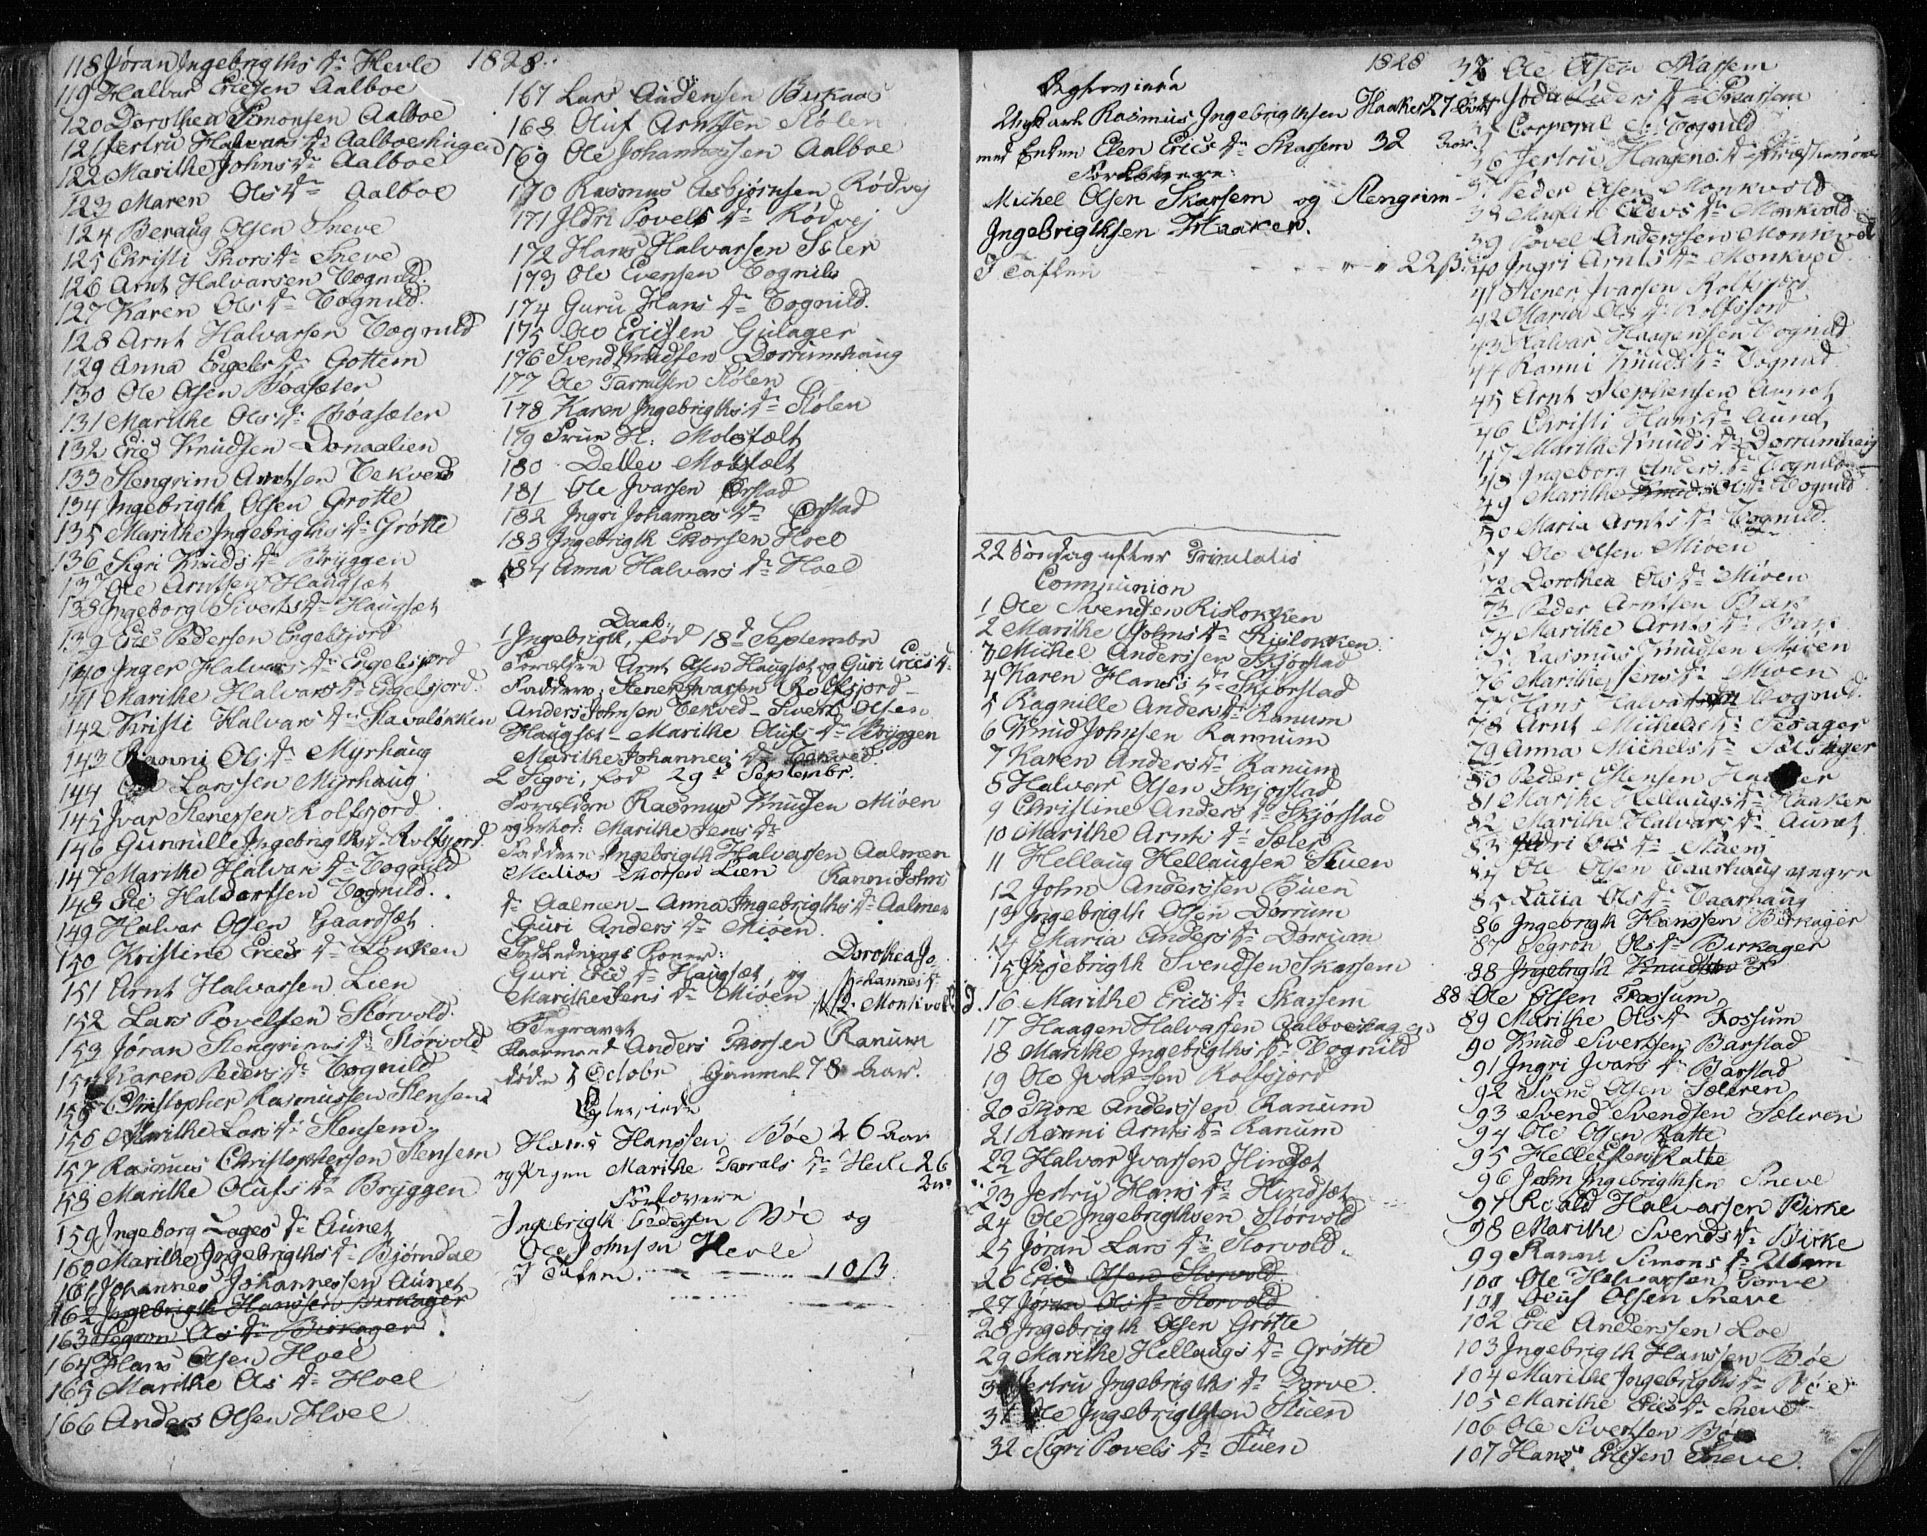 1828
118 Jøran Ingebrigths Dr Hevle
119 Halvar Ericsen Aalboe
120 Dorothea Simonsen Aalboe
121 Jertru Halvars Dr Aalboeshagen
122 Marithe Johns Dr Aalboe
123 Maren Ols Dr Aalboe
124 Beraug Olsen Sneve
125 Christi Thors Dr Sneve
126 Arnt Halvarsen Vognild
127 Karen Ols Dr Vognild
128 Arnt Halvarsen Vognild
129 Anna Engebr Dr Gottem
130 Ole Olsen Bøasæter
131 Marithe Ols Dr Bøasæter
132 Eric Knudsen Donaalien
133 Stengrim Arntsen Vekved
134 Ingebrigth Olsen Grøtte
135 Marithe Ingebrigths Dr Grøtte
136 Sigri Knuds Dr Bryggen
137 Ole Arntsen Haugsæt
138 Ingeborg Siverts Dr Haugsæt
139 Eric Pedersen Engelsjord
140 Inger Halvars Dr Engelsjord
141 Marithe Halvars Dr Engelsjord
142 Kristi Halvars Dr Stavaløkken
143 Ranni Ols Dr Myrhaug
144 Ole Larssen Myrhaug
145 Ivar Stenersen Rolfsjord
146 Gunnille Ingebrigths Dr Rolfsjord
147 Marithe Halvars Dr Vognild
148 Eric Haldorssen Vognild
149 Halvar Olsen Gaardsæt
150 Kristine Erics Dr Løkken
151 Arnt Halvarsen Lien
152 Lars Povelsen Størvold
153 Jøran Stengrims Dr Størvold
154 Karen Peders Dr Vognild
155 Christopher Rasmussen Stensem
156 Marithe Lars Dr Stensem
157 Rasmus Christophersen Stensem
158 Marithe Olufs Dr Bryggen
159 Ingeborg Lages Dr Aunet
160 Marithe Ingebrigths Dr Bjørndal
161 Johannes Johannessen Aunet
162 Ingebrigth Hanssen Birkager
163 Segron Ols Dr Birkager
164 Hans Olsen Hoel
165 Marithe Ols Dr Hoel
166 Anders Olsen Hoel
167 Lars Andersen Birkaas
168 Oluf Arntsen Stølen
169 Ole Johannessen Aalboe
170 Rasmus Asbjørnsen Rødvej
171 Ildri Povels Dr Rødvej
172 Hans Halvarsen Sæter
173 Ole Evensen Vognild
174 Guru Hans Dr Vognild
175 Ole Ericsen Gulager
176 Svend Knudsen Dorrumhaug
177 Ole Taraldsen Stølen
178 Karen Ingebrigths Dr Stølen
179 Frue H: Molsfælt
180 Detlev Molsfælt
181 Ole Ivarsen Ørstad
182 Ingri Johannes Dr Ørstad
183 Ingebrigth Thorsen Hoel
184 Anna Halvars Dr Hoel
Daab:
1 Ingebrigth, fød 18d September
Forældre Arnt Olsen Haugsæt og Guri Erics Dr
Faddere: Stener Ivarsen Rolfsjord
Anders Johnsen Vekved - Sivert Olsen
Haugset - Marithe Olufs Dr Bryggen
Marithe Johannes Dr Vekved
2 Sigri, fød 29d Septembr.
Forældre Rasmus Knudsen Miøen
og Marithe Jens Dr
Faddere Ingebrigth Halvarsen Aalmen
Thorsen Lien Ranni Johns
Dr Aalmen - Anna Ingebrigths Dr Aalmen
Guri Anders Dr Miøen
Indlednings Koner: Dorothea Jo
Guri Erics Dr Haugsæt, og hannes Dr
Marithe Jens Dr Miøen Monkvold
Begravet
Gaarmand Anders Thorsen Ranum
døde 7 Octobr Gammel 78 Aar.
Egteviede
Hans Hanssen Bøe 26 Aar
og Pigen Marithe Taralds Dr Hevle 26
Aar
Forlovere
Ingebrigth Pedersen Bøe og
Ole Johnsen Hevle
I Taflen 10 ß
1828
Egteviede
Ungkarl Rasmus Ingebrigthsen Haaker 27 Aar
med Enken Elen Erics Dr Skarsem 32 Aar.
Forlovere:
Michel Olsen Skarsem og Stengrim
Ingebrigthsen Haaker.
I Taflen 22 ß
22 Søndag efter Trinitatis
Communion
1 Ole Svendsen Risløkken
2 Marithe Johns Dr Risløkken
3 Michel Anderssen Skjørstad
4 Karen Hans Dr Skjørstad
5 Ragnille Anders Dr Ranum
6 Knud Johnsen Rannum
7 Karen Anders Dr Ranum
8 Halvar Olsen Skjørstad
9 Christine Anders Dr Skjørstad
10 Marithe Arnts Dr Sæter
11 Hellaug Hellaugsen Stuen
12 John Anderssen Buen
13 Ingebrigth Olsen Dørrum
14 Maria Anders Dr Dørrum
15 Ingebrigth Svendsen Skarsem
16 Marithe Erics Dr Skarsem
17 Haagen Halvarsen Aalboeshagen
18 Marithe Ingebrigths Dr Vognild
19 Ole Ivarsen Rolfsjord
20 Thore Anderssen Ranum
21 Ranni Arnts Dr Ranum
22 Halvor Ivarssen Hindsæt
23 Jertru Hans Dr Hindsæt
24 Ole Ingebrigthsen Størvold
25 Jøran Lars Dr Størvold
26 Eric Olsen Størvold
27 Jøran Ols Dr Størvold
28 Ingebrigth Olsen Grøtte
29 Marithe Hellaugs Dr Grøtte
30 Jertru Ingebrigths Dr Torve
31 Ole Ingebrigthsen Stuen
32 Sigri Povels Dr Stuen
33 Ole Olsen Skarsem
Peders Dr Skarsem
35 Corporal Vognild
36 Jertru Haagens Dr
37 Peder Olsen Monkvold
38 Dr Monkvold
39 Povel Anderssen Monkvold
40 Ingri Arnts Dr Monkvold
41 Stener Ivarsen Rolfsjord
42 Maria Ols Dr Rolfsjord
43 Halvar Haagensen Vognild
44 Ranni Knuds Dr Vognild
45 Arnt Stephensen Aunet
46 Christi Hans Dr Aunet
47 Marithe Knuds Dr Dorrumhaug
48 Ingeborg Anders Dr Vognild
49 Marithe Knuds Ols Dr Vognild
50 Maria Arnts Dr Vognild
71 Ole Olsen Miøen
72 Dorothea Ols Dr Miøen
73 Peder Arntsen Bak
74 Marithe Arnts Dr Bak
75 Rasmus Knudsen Miøen
76 Marithe Jens Dr Miøen
77 Hans Halvarsen Vognild
78 Arnt Michels Dr Sæsager
79 Anna Michels Dr Sæsager
80 Peder Estensen Haaker
81 Marithe Hellaugs Dr Haaker
82 Marithe Halvars Dr Aunet
83 Ildri Ols Dr Stuen
84 Ole Olsen Vaarhaug yngre
85 Lucia Ols Dr Vaarhaug
86 Ingebrigth Hanssen Birkager
87 Segron Ols Dr Birkager
88 Ingebrigth Knudsen
88 Ole Olsen Fossum
89 Marithe Ols Dr Fossum
90 Knud Sivertsen Bårstad
91 Ingri Ivars Dr Bårstad
92 Svend Olsen Sæteren
93 Svend Svendsen Sæteren
94 Ole Olsen Katte
95 Helle Katte
96 John Ingebrigthsen Sneve
97 Roald Halvarsen Birke
98 Marithe Svends Dr Birke
99 Ranni Simons Dr
100 Ole Halvarsen Torve
101 Oluf Olsen Sneve
102 Eric Anderssen Loe
103 Ingebrigth Hanssen Bøe
104 Marithe Ingebrigths Dr Bøe
105 Marithe Erics Dr Sneve
106 Ole Sivertsen Bøe
107 Hans Ericsen Sneve